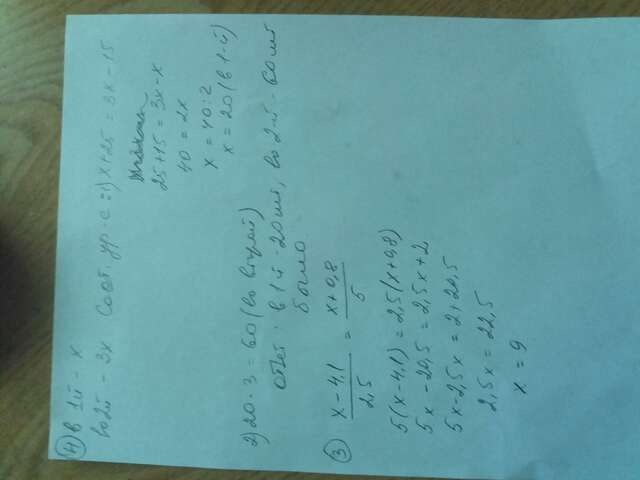 ④ в 1й - x
во 2й - 3x Сост. ур-е: 1) x+25=3x-15
25+15=3x-x
40=2x
x=40:2
x=20 (в 1-й)
2) 20·3=60 (во второй)
ответ: в 1й-20шт, во 2й-60шт
было
③ x-4,1 / 2,5 = x+0,8 / 5
5(x-4,1)=2,5(x+0,8)
5x-20,5=2,5x+2
5x-2,5x=2+20,5
2,5x=22,5
x=9